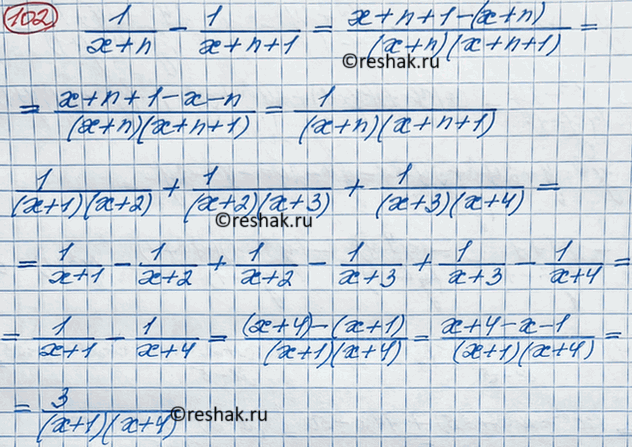 102 1/(x+n) - 1/(x+n+1) = (x+n+1-(x+n))/((x+n)(x+n+1)) =
©reshak.ru
= (x+n+1-x-n)/((x+n)(x+n+1)) = 1/((x+n)(x+n+1))
1/((x+1)(x+2)) + 1/((x+2)(x+3)) + 1/((x+3)(x+4)) =
©reshak.ru
= 1/(x+1) - 1/(x+2) + 1/(x+2) - 1/(x+3) + 1/(x+3) - 1/(x+4) =
= 1/(x+1) - 1/(x+4) = ((x+4)-(x+1))/((x+1)(x+4)) = (x+4-x-1)/((x+1)(x+4)) =
= 3/((x+1)(x+4))
©reshak.ru